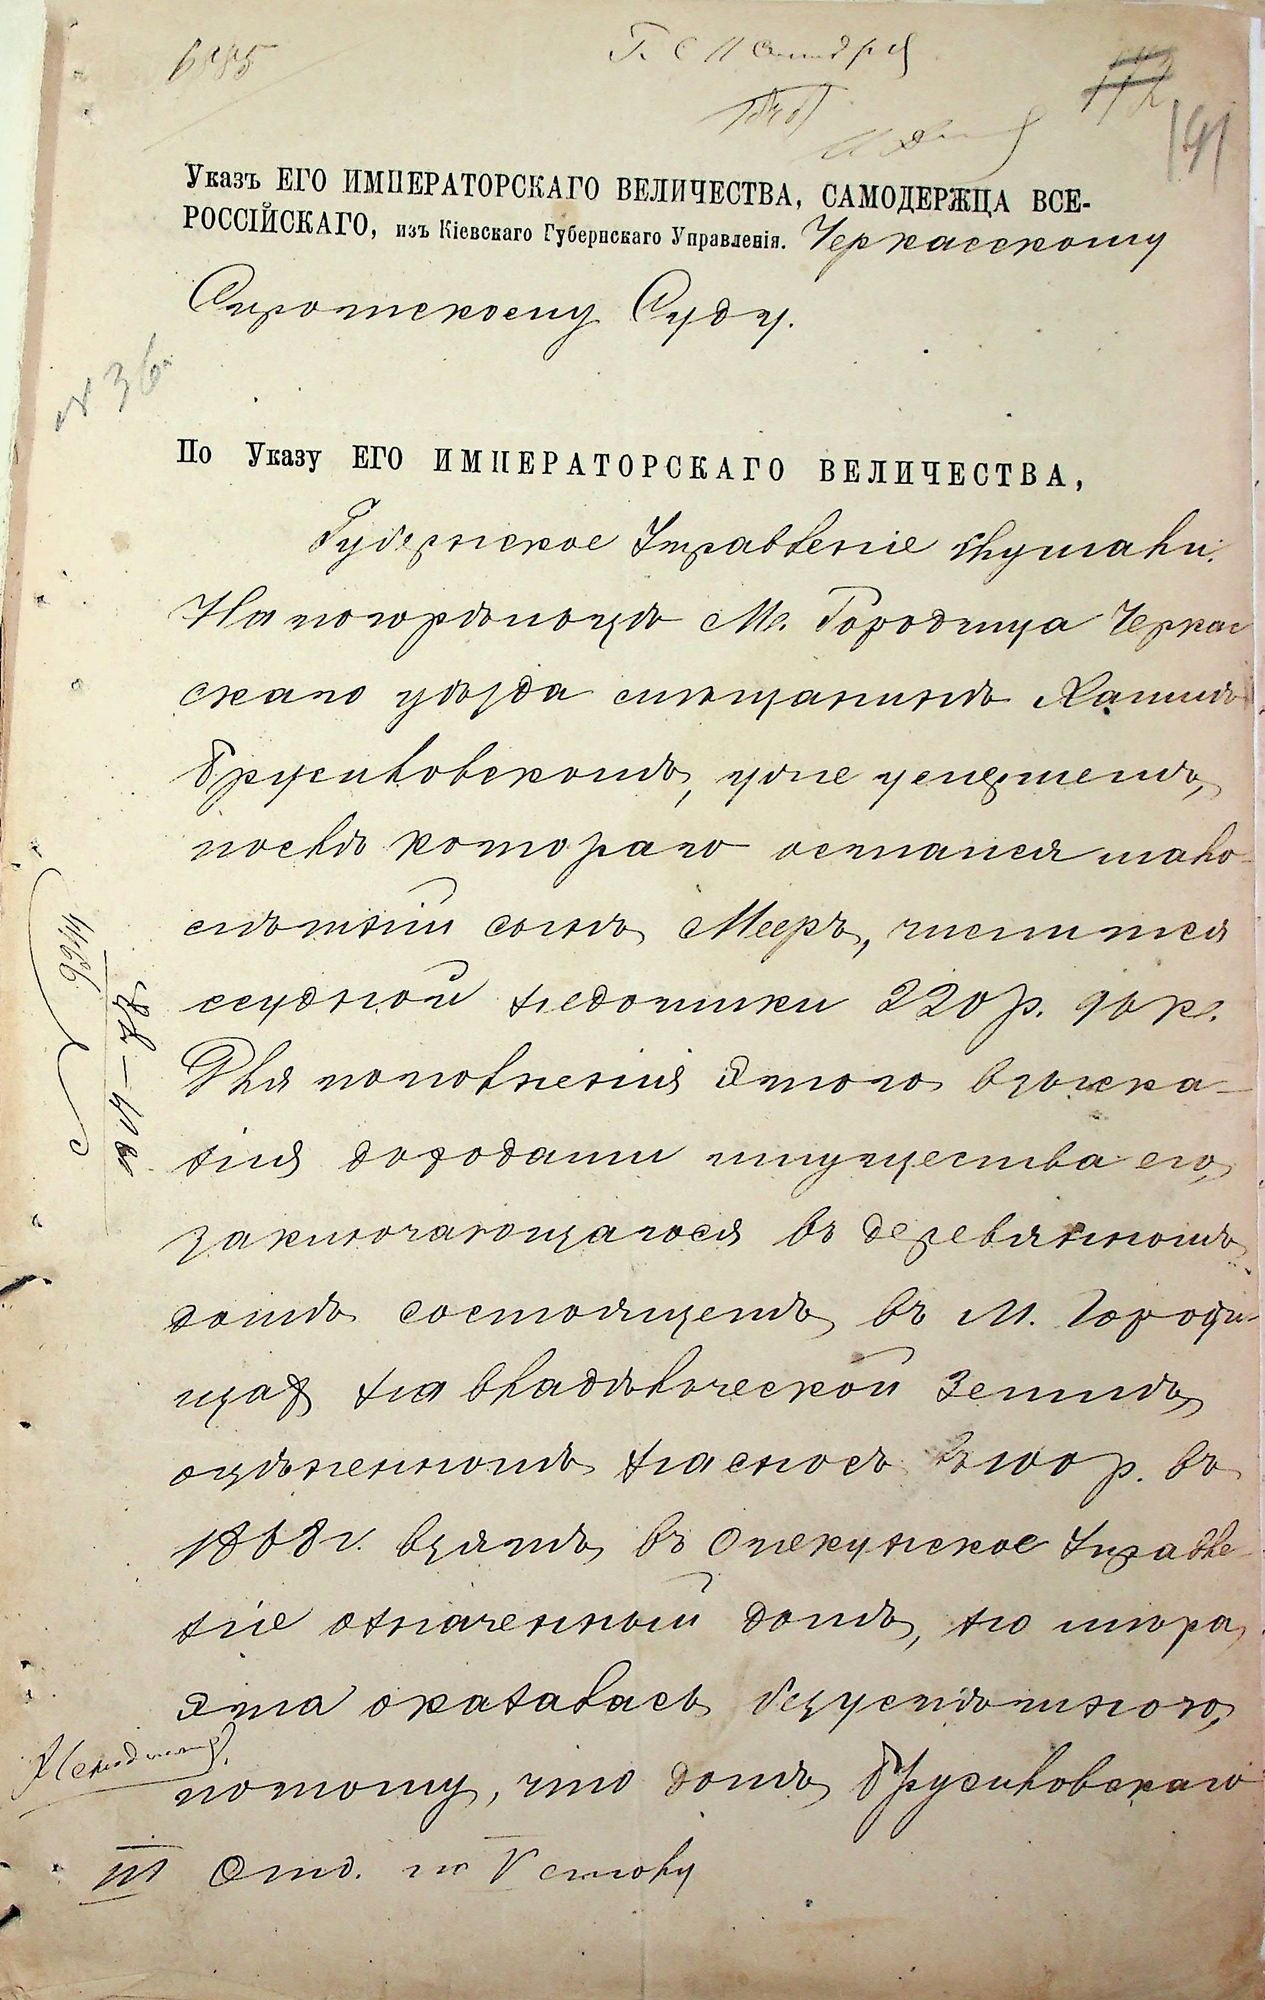 Указъ ЕГО ИМПЕРАТОРСКАГО ВЕЛИЧЕСТВА, САМОДЕРЖЦА ВСЕ-
РОССІЙСКАГО, изъ Кіевскаго Губернскаго Управленія. Черкасскому
Сиротскому Суду.
№ 36
По Указу ЕГО ИМПЕРАТОРСКАГО ВЕЛИЧЕСТВА,
Губернское Управленіе слушали:
На погорѣльцѣ М. Городища Черкас
скаго уѣзда мѣщанинѣ Хаимѣ
Брусиловскомъ, уже умершемъ,
послѣ котораго остался мало-
лѣтній сынъ Мееръ, числится
ссудной недоимки 220 р. 90 к.
Для пополненія этого взыска-
нія доходами имущества его,
заключающагося въ деревянномъ
домѣ состоящемъ въ М. Городи-
щѣ на владѣльческой землѣ,
оцѣненномъ на сносъ въ 100 р. въ
1868 г. взятъ въ опекунское управле-
ніе означенный домъ, но мѣра
эта оказалась безуспѣшною,
потому, что домъ Брусиловскаго
III Отд. по V столу